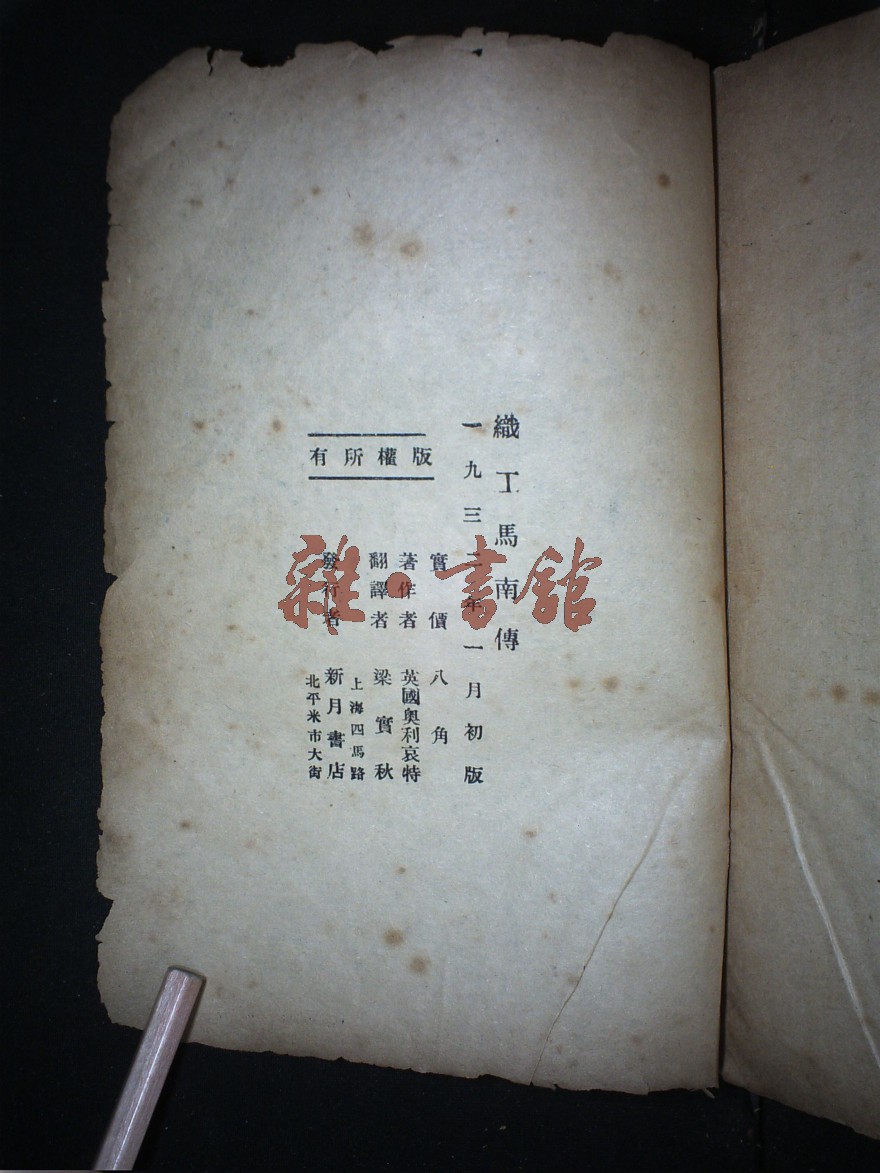 織工馬南傳
一九三二年一月初版
實價 八角
著作者 英國奧利哀特
翻譯者 梁實秋
上海四馬路
發行者 新月書店
北平米市大街
版權所有
雜·書館